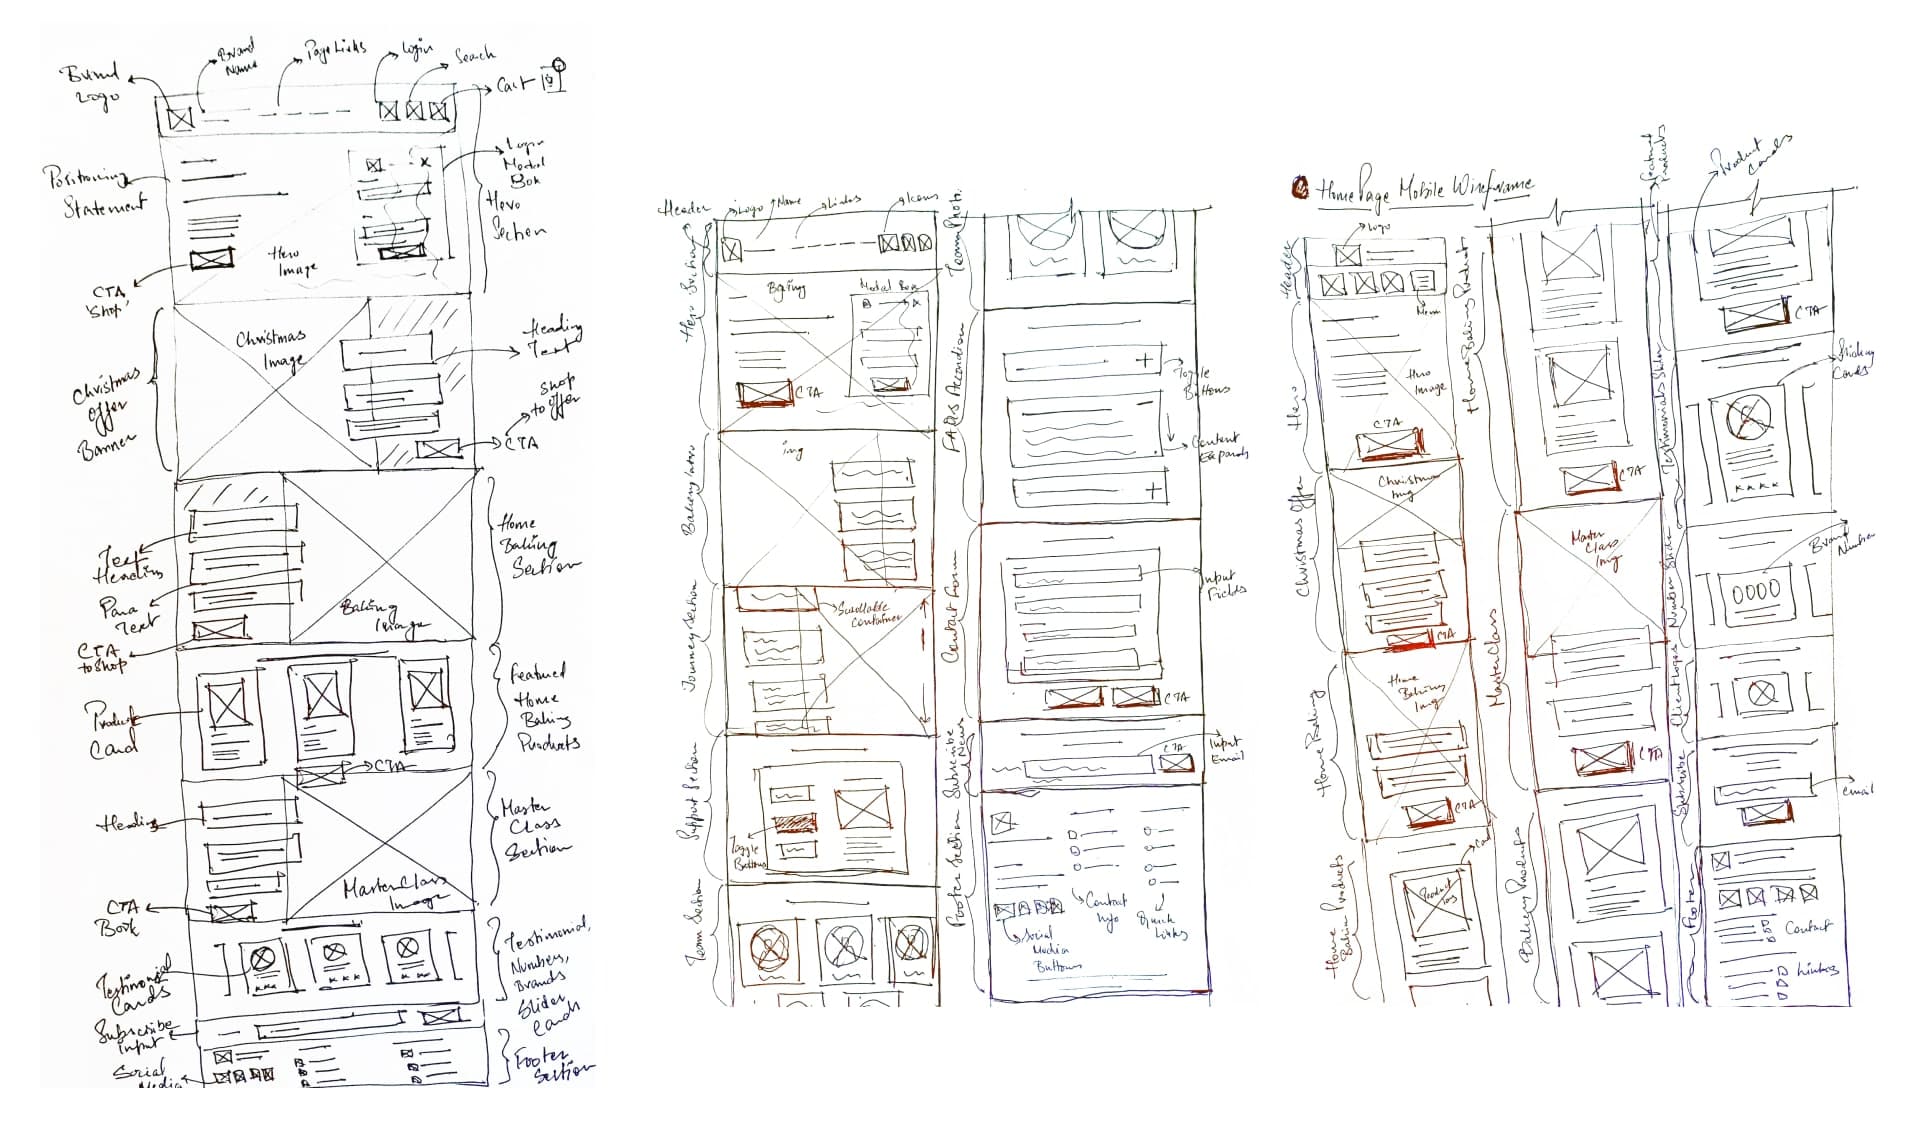 Brand
Logo
Brand
Name
Page Links
Login
Search
Cart
Positioning
Statement
Login
Modal
Box
Hero
Section
Hero
Image
CTA
'Shop'
Christmas
Image
Heading
Text
Shop
to offer
CTA
Christmas
Offer
Banner
Text
Heading
Para
Text
CTA
to shop
Home
Baking
Section
Baking
Image
Product
Card
CTA
Featured
Home
Baking
Products
Heading
Master
Class
Section
MasterClass
Image
CTA
Book
Testimonial
Cards
Testimonial,
Numbers,
Brands
Slider
Cards
Subscribe
Input
Social
Media
Footer
Section
Header
Logo
Name
Links
Icons
Hero Section
Baking
Modal Box
CTA
img
Journey Section
Scrollable
Container
Support Section
Toggle
Buttons
Team Section
Team Photo.
FAQs Accordion
Toggle
Buttons
Content
Expands
Contact Form
Input
Fields
CTA
Subscribe
News
CTA
Input
Email
Footer Section
Contact
Info
Quick
Links
Social
Media
Buttons
HomePage Mobile Wireframe
Header
Logo
Menu
Hero
Hero
Image
CTA
Christmas Offer
Christmas
Img
CTA
Home Baking
Home
Baking
Img
CTA
Home Products
Product
Img
Home Baking Product
CTA
MasterClass
Master
Class
Img
CTA
Bakery Products
Featured
Products
Product
Cards
CTA
Testimonials Slider
Sliding
Cards
Number Slider
Brand
Number
Client Logos
Subscribe
email
Footer
Contact
Links